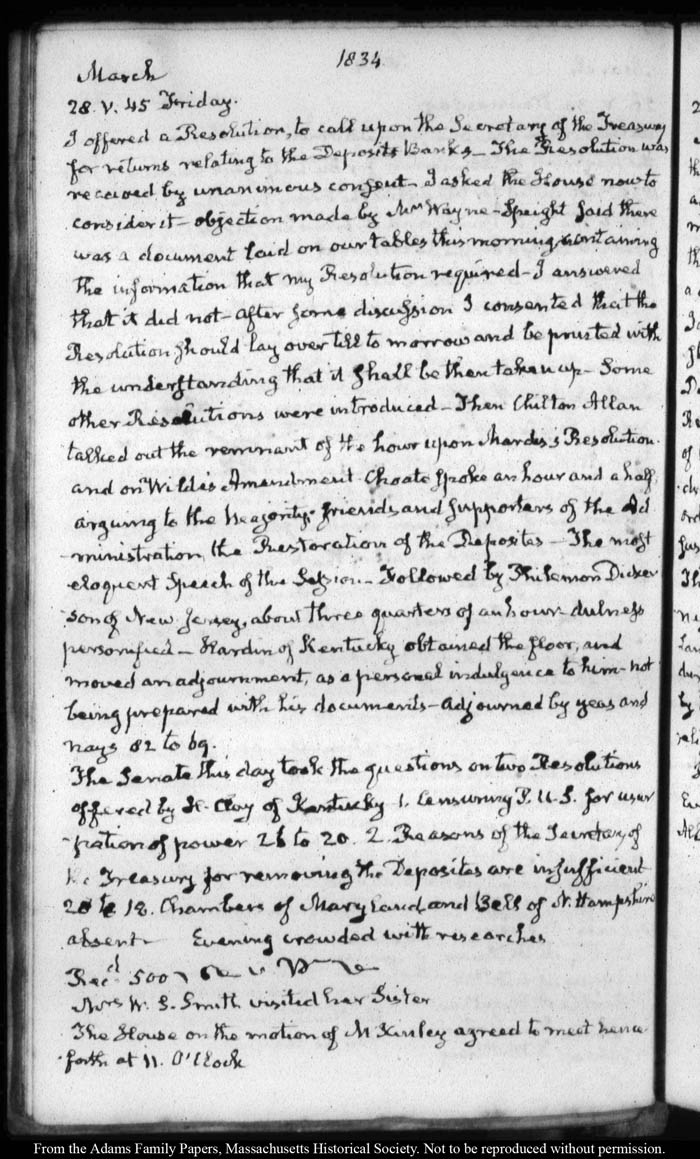 1834
March
28. V. 45 Friday.
I offered a Resolution, to call upon the Secretary of the Treasury
for returns relating to the Deposits Banks – The Resolution was
received by unanimous consent – I asked the House now to
consider it – objection made by Wayne – Speight said there
was a document laid on our tables this morning containing
the information that my Resolution required – I answered
that it did not – after some discussion I consented that the
Resolution should lay over till to morrow and be printed with
the understanding that it shall be then taken up – Some
other Resolutions were introduced – Then Chilton Allan
talked out the remnant of the hour upon Mardis's Resolution.
and on Wilde's Amendment – Choate spoke an hour and a half,
arguing to the Majority, friends and supporters of the Ad
-ministration, the Restoration of the Deposites – The most
eloquent Speech of the Session – Followed by Philemon Dicker
-son of New Jersey, about three quarters of an hour – dulness
personified – Hardin of Kentucky obtained the floor, and
moved an adjournment, as a personal indulgence to him – not
being prepared with his documents – adjourned by yeas and
nays 82 to 69.
The Senate this day took the questions on two Resolutions
offered by H. Clay of Kentucky 1. Censuring P. U.S. for usur
-pation of power 26 to 20. 2. Reasons of the Secretary of
the Treasury for removing the Deposites are insufficient
to 18. Chambers of Maryland and Bell of N. Hampshire
absent – Evening crowded with researches
Recd. 500
Mrs W. S. Smith visited her Sister
The House on the motion of McKinley agreed to meet hence
-forth at 11. O'Clock
From the Adams Family Papers, Massachusetts Historical Society. Not to be reproduced without permission.